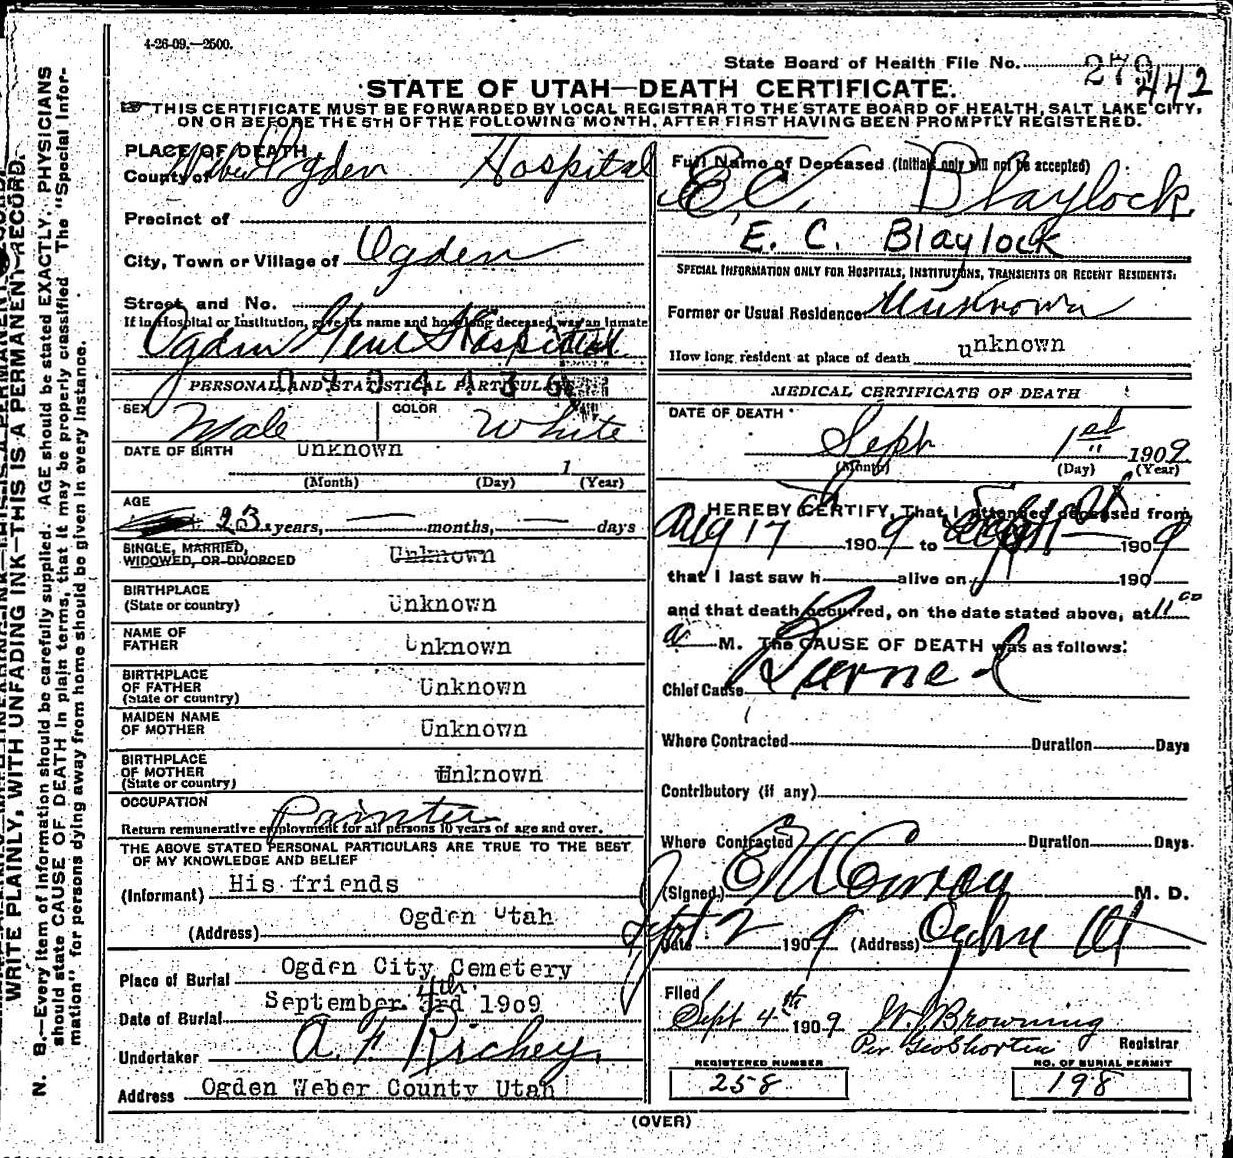 4-26-09.—2500.
State Board of Health File No. 279 442
STATE OF UTAH—DEATH CERTIFICATE.
THIS CERTIFICATE MUST BE FORWARDED BY LOCAL REGISTRAR TO THE STATE BOARD OF HEALTH, SALT LAKE CITY,
ON OR BEFORE THE 5TH OF THE FOLLOWING MONTH, AFTER FIRST HAVING BEEN PROMPTLY REGISTERED.
PLACE OF DEATH
County of Weber Ogden Hospital
Precinct of
City, Town or Village of Ogden
Street and No.
If in Hospital or Institution, give its name and how long deceased was an inmate
Ogden Genl Hospital
0904436
PERSONAL AND STATISTICAL PARTICULARS
SEX Male COLOR White
DATE OF BIRTH unknown
1
(Month) (Day) (Year)
AGE
23 years, — months, — days
SINGLE, MARRIED,
WIDOWED, OR DIVORCED Unknown
BIRTHPLACE
(State or country) Unknown
NAME OF
FATHER Unknown
BIRTHPLACE
OF FATHER
(State or country) Unknown
MAIDEN NAME
OF MOTHER Unknown
BIRTHPLACE
OF MOTHER
(State or country) Unknown
OCCUPATION Painter
Return remunerative employment for all persons 10 years of age and over.
THE ABOVE STATED PERSONAL PARTICULARS ARE TRUE TO THE BEST
OF MY KNOWLEDGE AND BELIEF
(Informant) His friends
(Address) Ogden Utah
Place of Burial Ogden City Cemetery
4th
Date of Burial September 3rd 1909
Undertaker A. F. Richey.
Address Ogden Weber County Utah
Full Name of Deceased (Initials only will not be accepted)
E. C. Blaylock.
E. C. Blaylock
SPECIAL INFORMATION ONLY FOR HOSPITALS, INSTITUTIONS, TRANSIENTS OR RECENT RESIDENTS:
Former or Usual Residence Unknown
How long resident at place of death unknown
MEDICAL CERTIFICATE OF DEATH
DATE OF DEATH
Sept 1st 1909
(Month) (Day) (Year)
I HEREBY CERTIFY, That I attended deceased from
Aug 17 1909 to Sept 1 1909
that I last saw h alive on 190
and that death occurred, on the date stated above, at 11 00
a M. The CAUSE OF DEATH was as follows:
Chief Cause Burned
Where Contracted Duration Days
Contributory (if any)
Where Contracted Duration Days.
(Signed) M. D.
Date Sept 2 1909 (Address) Ogden Ut
Filed
Sept 4th 1909 W. J. Browning
Per Geo Shorten Registrar
REGISTERED NUMBER NO. OF BURIAL PERMIT
258 198
(OVER)
WRITE PLAINLY, WITH UNFADING INK—THIS IS A PERMANENT RECORD.
N. B.—Every item of information should be carefully supplied. AGE should be stated EXACTLY. PHYSICIANS
should state CAUSE OF DEATH in plain terms, that it may be properly classified. The "Special Infor-
mation" for persons dying away from home should be given in every instance.